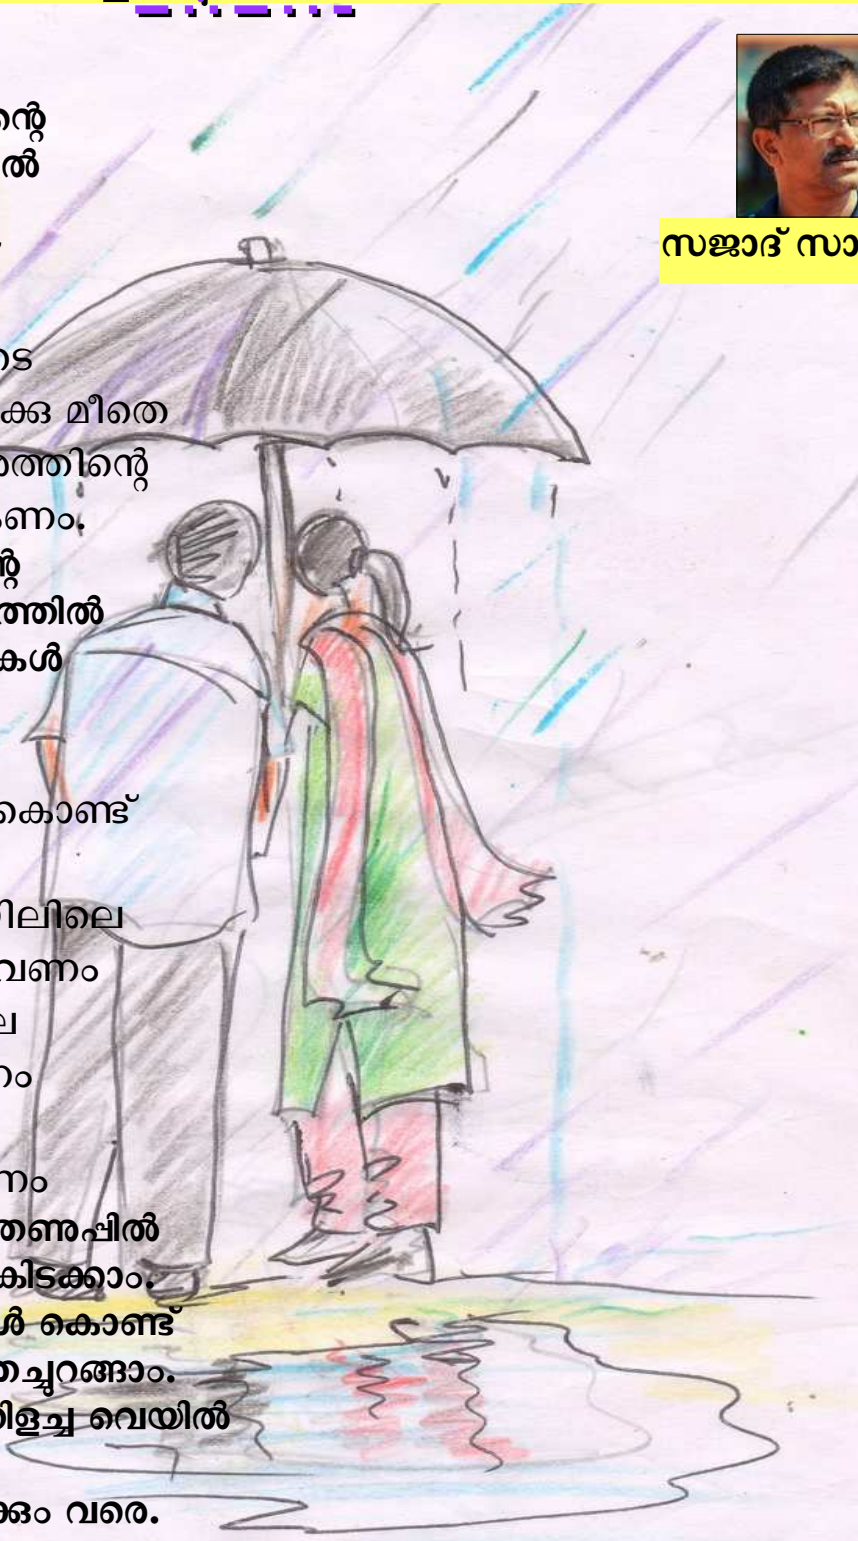 ന്റെ
ൽ
സജാദ് സാ
ടെ
ക്കു മീതെ
ത്തിന്റെ
ണം.
ന്റെ
ത്തിൽ
കൾ
കൊണ്ട്
ിലിലെ
വണം
ല
നം
ണം
തണുപ്പിൽ
കിടക്കാം.
ൾ കൊണ്ട്
തച്ചുറങ്ങാം.
തിളച്ച വെയിൽ
ക്കും വരെ.